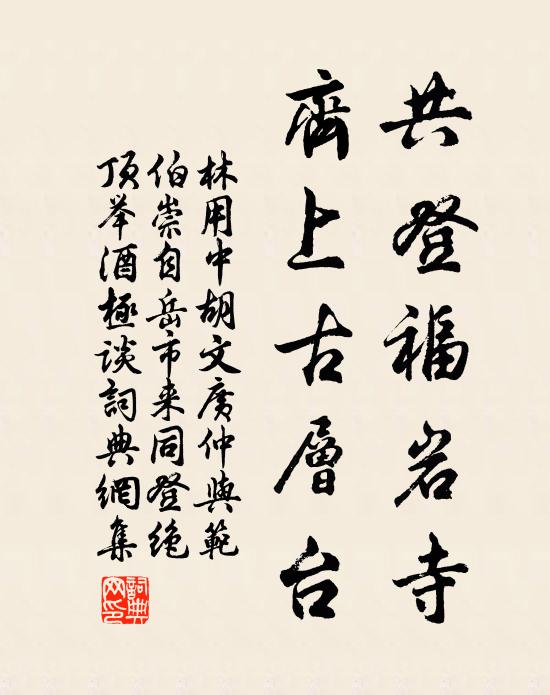 共登福岩寺
齊上古層台
林用中胡文廣仲與範
伯崇自岳市来同登绝
頂举酒極谈詞典網集
詞典网印